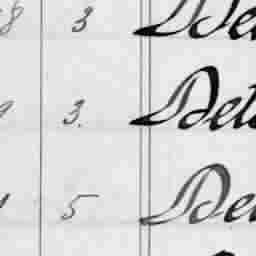 8 3 Det
9 3. Det
5 Det